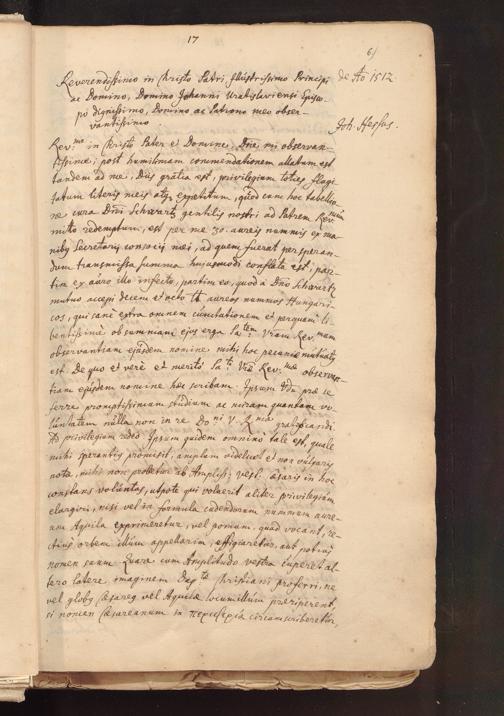 17
6)
Reverendissimo in Christo Patri, Illustrissimo Principi
de Ao 1512
ac Domino, Domino Johanni Vratislaviensi Episco-
po dignissimo, Domino ac Patrono meo obser-
vantissimo.
Joh. Hessus.
Rev.ma in Christo Pater et Domine, Dne mi observan-
tissime; post humilimam commendationem allatum est
tandem ad me, Diis gratia est, privilegium toties flagi-
tatum literis meis atq expetitum, quod cum hoc tabella-
rio cura Dni Schwartz gentilis nostri ad Patrem Rev.
mitto redemptum, est per me 30. aureis nummis ex ma-
nibq Secretarij consocij mei, ad quem fuerat per
dum transmissa summa hujusmodi conflata est, par-
tim ex auro illo infecto, partim eo, quod a Dno Schwartz
mutuo accepi decem et octo aureos nummos Hungari-
cos, qui sane extra omnem cunctationem et perquam li-
bentissime ob summam ejus erga Vram Rev.mam
observantiam ejusdem nomine mihi hoc pecuniae mutuatq
est. De quo et vere et merito Vrae Rev.mae observan-
tiam ejusdem nomine hoc scribam. Ipsum prae se
ferre promptissimum studium ac miram quandam vo-
luntatem nulla non in re Doni V. Rma gratificandi.
Ad privilegium redeo. Ipsum quidem omnino tale est, quale
mihi sperantis promisit, amplum videlicet et non vulgaris
nota, mihi non probetur ab Ampliss; vest. Caesaris in hoc
constans voluntas, utpote qui voluerit aliter privilegium
elargiri, nisi vel in formula cudendorum nummum aureo-
rum Aquila exprimeretur, vel pomum, quod vocant, re-
ctius orbem illum appellarim, effigiaretur, aut potius
nomen suum. Quare cum Amplitudo vestra cuperet al-
tero latere imaginem Christiani, proferri, ne
vel globq Caesareq vel Aquila locum illum praeriperent,
si nomen Caesareanum in περιφερία circumscriberetur,